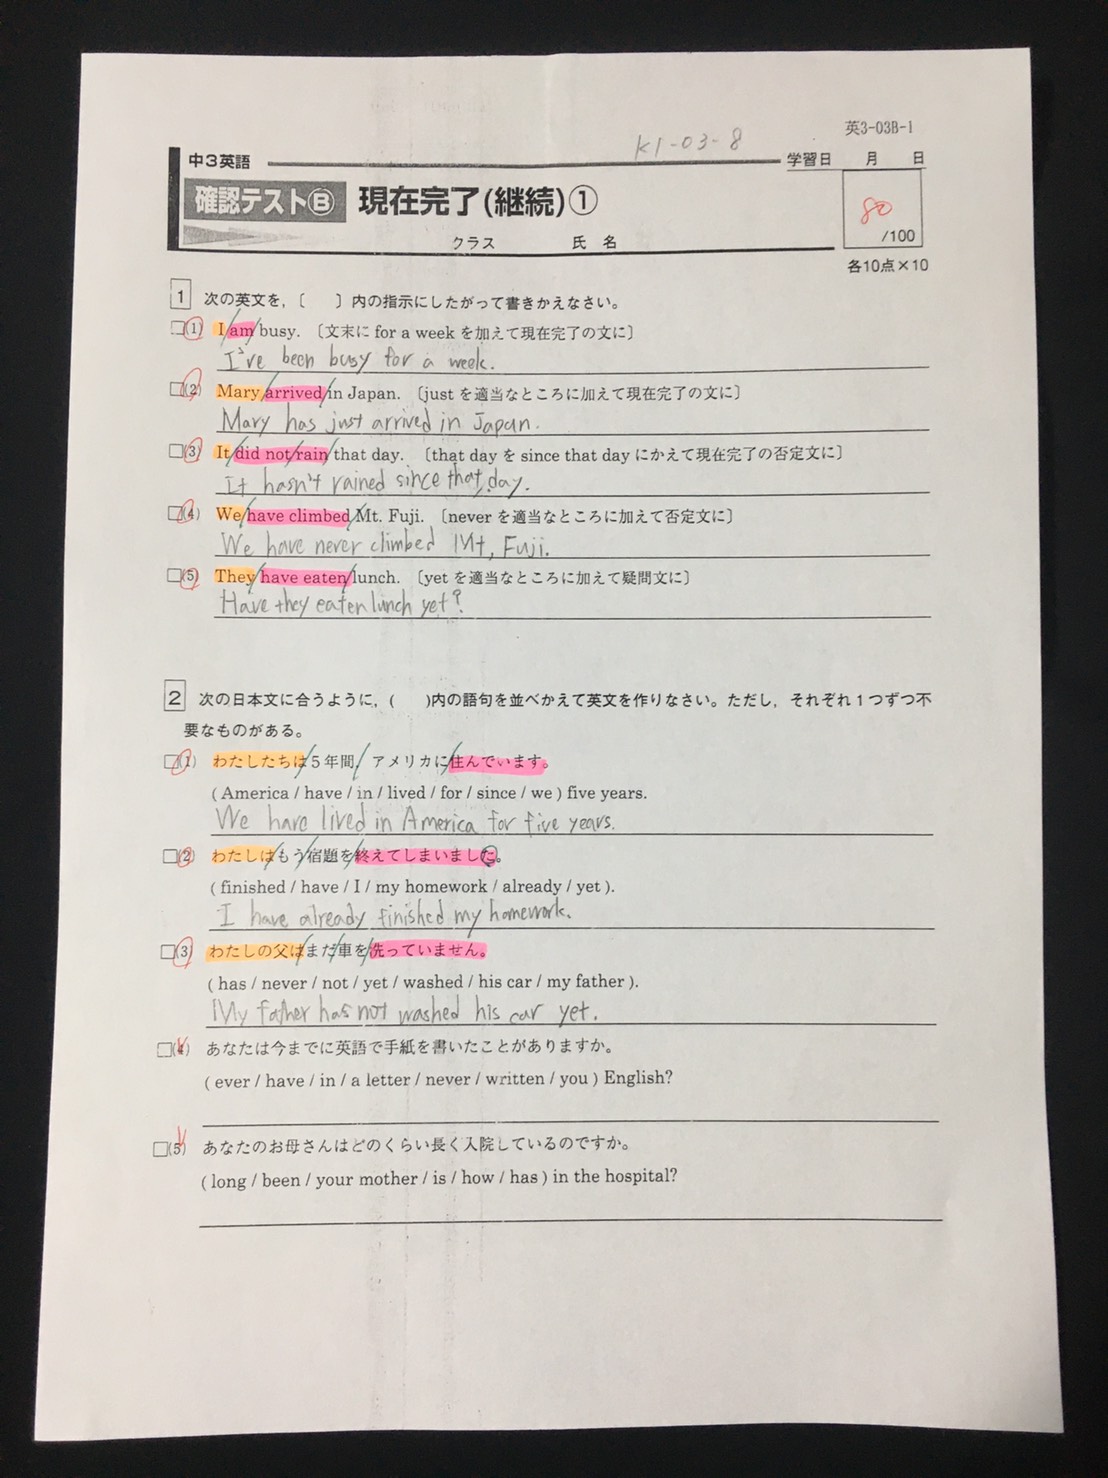 英3-03B-1
K1-03-8
中3英語
学習日 月 日
確認テストⒷ 現在完了(継続)①
80
/100
クラス 氏 名
各10点×10
1 次の英文を,〔 〕内の指示にしたがって書きかえなさい。
□(1) I am busy. 〔文末に for a week を加えて現在完了の文に〕
I've been busy for a week.
□(2) Mary arrived in Japan. 〔just を適当なところに加えて現在完了の文に〕
Mary has just arrived in Japan.
□(3) It did not rain that day. 〔that day を since that day にかえて現在完了の否定文に〕
It hasn't rained since that day.
□(4) We have climbed Mt. Fuji. 〔never を適当なところに加えて否定文に〕
We have never climbed Mt, Fuji.
□(5) They have eaten lunch. 〔yet を適当なところに加えて疑問文に〕
Have they eaten lunch yet?
2 次の日本文に合うように,( )内の語句を並べかえて英文を作りなさい。ただし,それぞれ1つずつ不
要なものがある。
□(1) わたしたちは5年間,アメリカに住んでいます。
( America / have / in / lived / for / since / we ) five years.
We have lived in America for five years.
□(2) わたしはもう宿題を終えてしまいました。
( finished / have / I / my homework / already / yet ).
I have already finished my homework.
□(3) わたしの父はまだ車を洗っていません。
( has / never / not / yet / washed / his car / my father ).
My father has not washed his car yet.
□(4) あなたは今までに英語で手紙を書いたことがありますか。
( ever / have / in / a letter / never / written / you ) English?
□(5) あなたのお母さんはどのくらい長く入院しているのですか。
( long / been / your mother / is / how / has ) in the hospital?